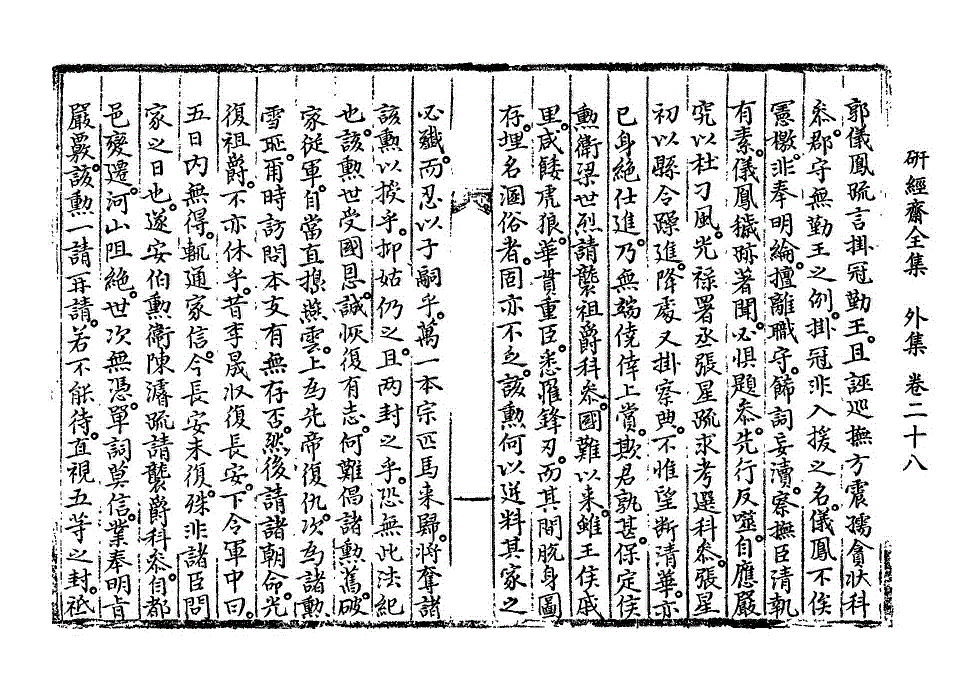 硏經齋全集 外集 卷二十八
郭儀鳳疏言掛冠勤王。且誣巡撫方震孺貪狀科
叅。郡守無勤王之例。掛冠非入援之名。儀鳳不俟
憲檄。非奉明綸。擅離職守。飾詞妄瀆。察撫臣清執
有素。儀鳳穢跡著聞。必懼題叅。先行反噬。自應嚴
究。以杜刁風。光祿署丞張星疏求考選科叅。張星
初以縣令躁進。降處又掛察典。不惟望斷清華。亦
已身絶仕進。乃無端僥倖上賞。欺君孰甚。保定侯
勳衛梁世烈請襲祖爵科叅。國難以來。雖王侯戚
里。咸餧虎狼。華貫重臣。悉罹鋒刃。而其間脫身圖
存。埋名溷俗者。固亦不乏。該勳何以逆料其家之
必殲。而忍以子嗣乎。萬一本宗匹馬來歸。將奪諸
該勳以授乎。抑姑仍之。且兩封之乎。恐無此法紀
也。該勳世受國恩。誠恢復有志。何難倡諸勳舊。破
家從軍。自當直搗燕雲。上爲先帝復仇。次爲諸勳
雪恥。爾時訪問本支有無存否。然後請諸朝命。光
復祖爵。不亦休乎。昔李晟收復長安。下令軍中曰。
五日內無得。輒通家信。今長安未復。殊非諸臣問
家之日也。遂安伯勳衛陳濬疏請襲爵科叅。自都
邑變遷。河山阻絶。世次無憑。單詞莫信。業奉明旨
嚴覈。該勳一請再請。若不能待。直視五等之封。祇